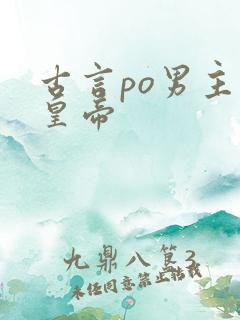 古言po男主
皇帝
九鼎八簋3
未任同意禁止转载